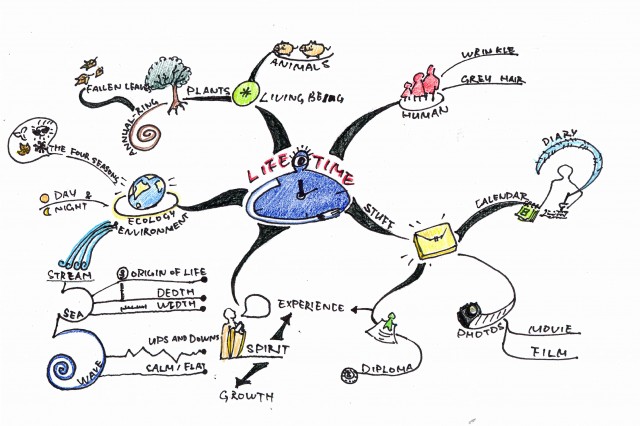 LIFE TIME
ANIMALS
LIVING BEING
PLANTS
FALLEN LEAVE
ANNUAL-RING
HUMAN
WRINKLE
GREY HAIR
THE FOUR SEASONS
DAY &
NIGHT
ECOLOGY
ENVIRONMENT
STREAM
SEA
ORIGIN OF LIFE
DEOTH
WIDTH
WAVE
UPS AND DOWNS
CALM/FLAT
SPIRIT
EXPERIENCE
GROWTH
STUFF
CALENDAR
DIARY
PHOTOS
MOVIE
FILM
DIPLOMA